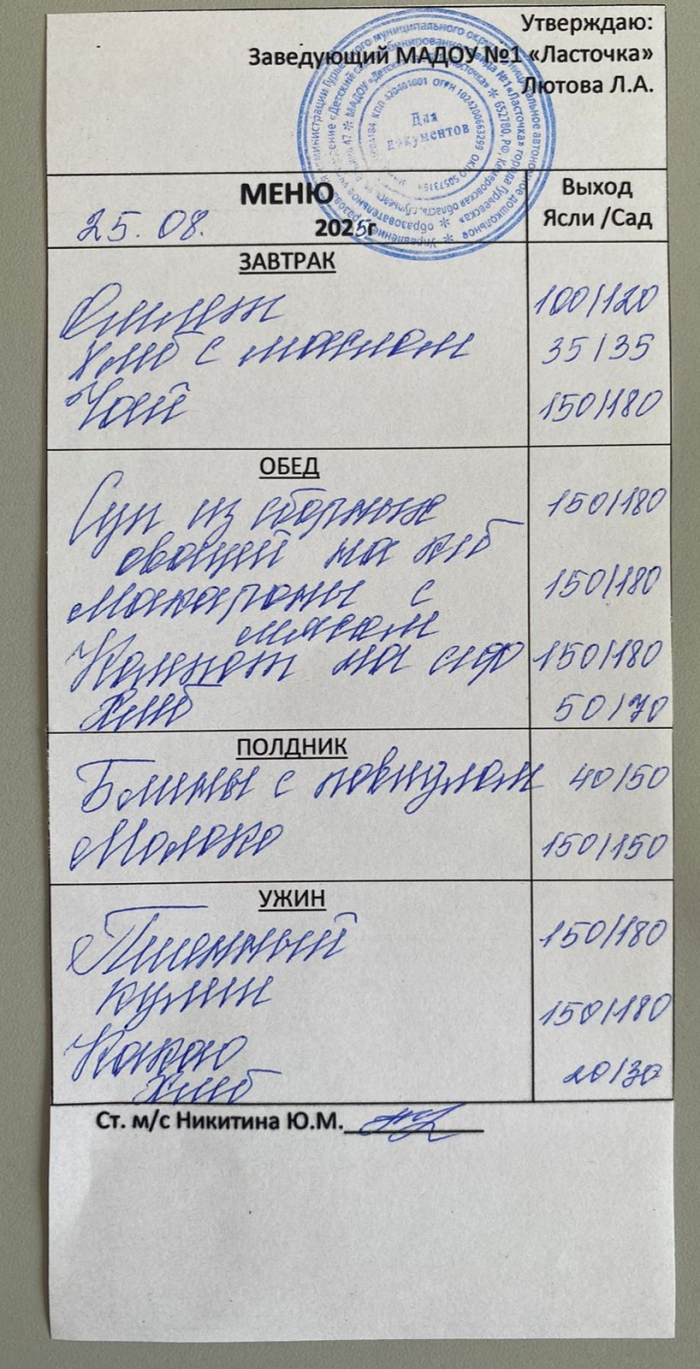 Утверждаю:
Заведующий МАДОУ №1 «Ласточка»
Лютова Л.А.
Для
документов
МЕНЮ
25.08. 2025г
Выход
Ясли /Сад
ЗАВТРАК
Омлет 100/120
Хлеб с маслом 35/35
Чай 150/180
ОБЕД
Суп из сборных 150/180
овощей на к/б
Макароны с 150/180
мясом
Компот из с/ф 150/180
Хлеб 50/70
ПОЛДНИК
Блины с повидлом 40/50
Молоко 150/150
УЖИН
Пшенный 150/180
кулеш
Какао 150/180
Хлеб 20/30
Ст. м/с Никитина Ю.М.